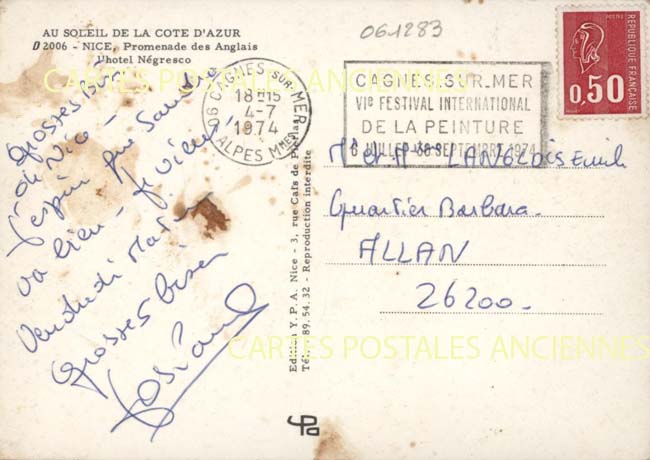 AU SOLEIL DE LA COTE D'AZUR
D 2006 - NICE, Promenade des Anglais
l'hotel Négresco
CARTES POSTALES ANCIENNES
061283
06 CAGNES-SUR-MER
18H15
4-7
1974
ALPES Mmes
CAGNES-SUR-MER
VIe FESTIVAL INTERNATIONAL
DE LA PEINTURE
SEPTEMBRE 1974
REPUBLIQUE FRANÇAISE
0,50
Grosses
de Nice -
J'espère que Sandra
va bien - Je viens
Vendredi Matin
Grosses bises
LANGLOIS Emile
Quartier Barbara.
ALLAN
26200.
Edition Y. P. A. Nice - 3, rue Cafs de
Tél. 89.54.32 - Reproduction interdite
CARTES POSTALES ANCIENNES